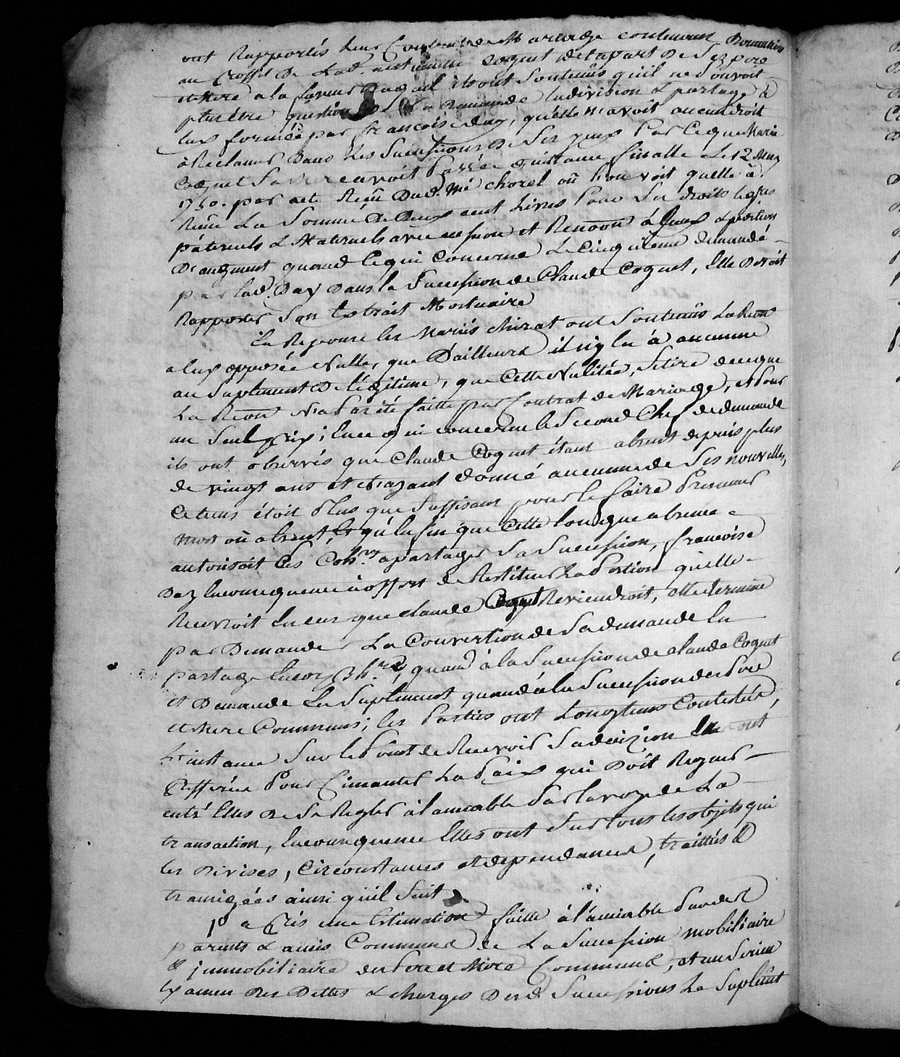 ont Rapportés leur Contrat de Mariage contenant Donnation
au Proffit De Lad. antoinette Coquet de la part De Ses pere
et Mere a la faveur Duquel ils ont Soutenus qu'il ne Pouvoit
plus être question De la Demande En division & partage à
Eux formée par francoise Day, qu'elle n'avoit aucun droit
à Reclamer Dans les Successions De Ses yeux Parceque Marie
Coquet Sa mere avoit Passée quittance finalle Le 12 May
1750. par acte Recu Dud. Me chorel où L'on voit qu'elle à
Recu La Somme De Deux cent Livres Pour Ses droits legitimes
paternels & Maternels avec cession et Renonon à Iceux & portion
D'augment quand à ce qui Concerne Le Cinquieme demandé
par lad. Day Dans la Succession de Claude Coquet, Elle Devoit
Rapporter Son Extrait Mortuaire
En Reponse les Mariés chirat ont Soutenûs La Renon
a Eux opposée Nulle, que D'ailleurs il n'y En à aucune
au Suplement De légitime, que Cette Nullitée, Se tire de ce que
La Renon N'a Pas été faitte par Contrat de Mariage, et Pour
un Seul prix; En ce qui concerne le Second Chef de demande
ils ont observés que Claude Coquet étant absent depuis plus
de vingt ans et N'ayant donné aucunne de Ses nouvelles,
Ce tems étoit Plus que Suffisant pour le faire Presumer
mort où absent, Et qu'enfin que Cette Longue absence
autorisoit Les Cohers a partager Sa Succession, francoise
Day En consequence à offert de Restituer La Portion qu'elle
Recevroit En cas que claude Coquet Reviendroit, Elle termine
par Demander La Convertion de Sa demande En
partage En 8bre, quand à la Succession de claude Coquet
et Demande En Suplement quand à la Succession des Pere
et Mere Communs; les Parties ont Longtems Contestées,
L'instance Sur le Point de Recevoir Sa decizion Elles ont
Differée Pour Cimenter La Paix qui Doit Regner
entr'Elles De Se Regler à l'amiable Par la voye de La
transaction, En consequence Elles ont Sur tous les objets qui
les Divises, Circonstances et dependances, traittés &
transigées ainsi qu'il Suit
1º a Eté une Estimation faitte à l'amiable Par des
parents & amis Communs de La Succession mobiliaire
& immobiliaire des Pere et Mere Communs, et un Serieux
Examen Des Dettes & charges Desd. Successions Le Supleuent